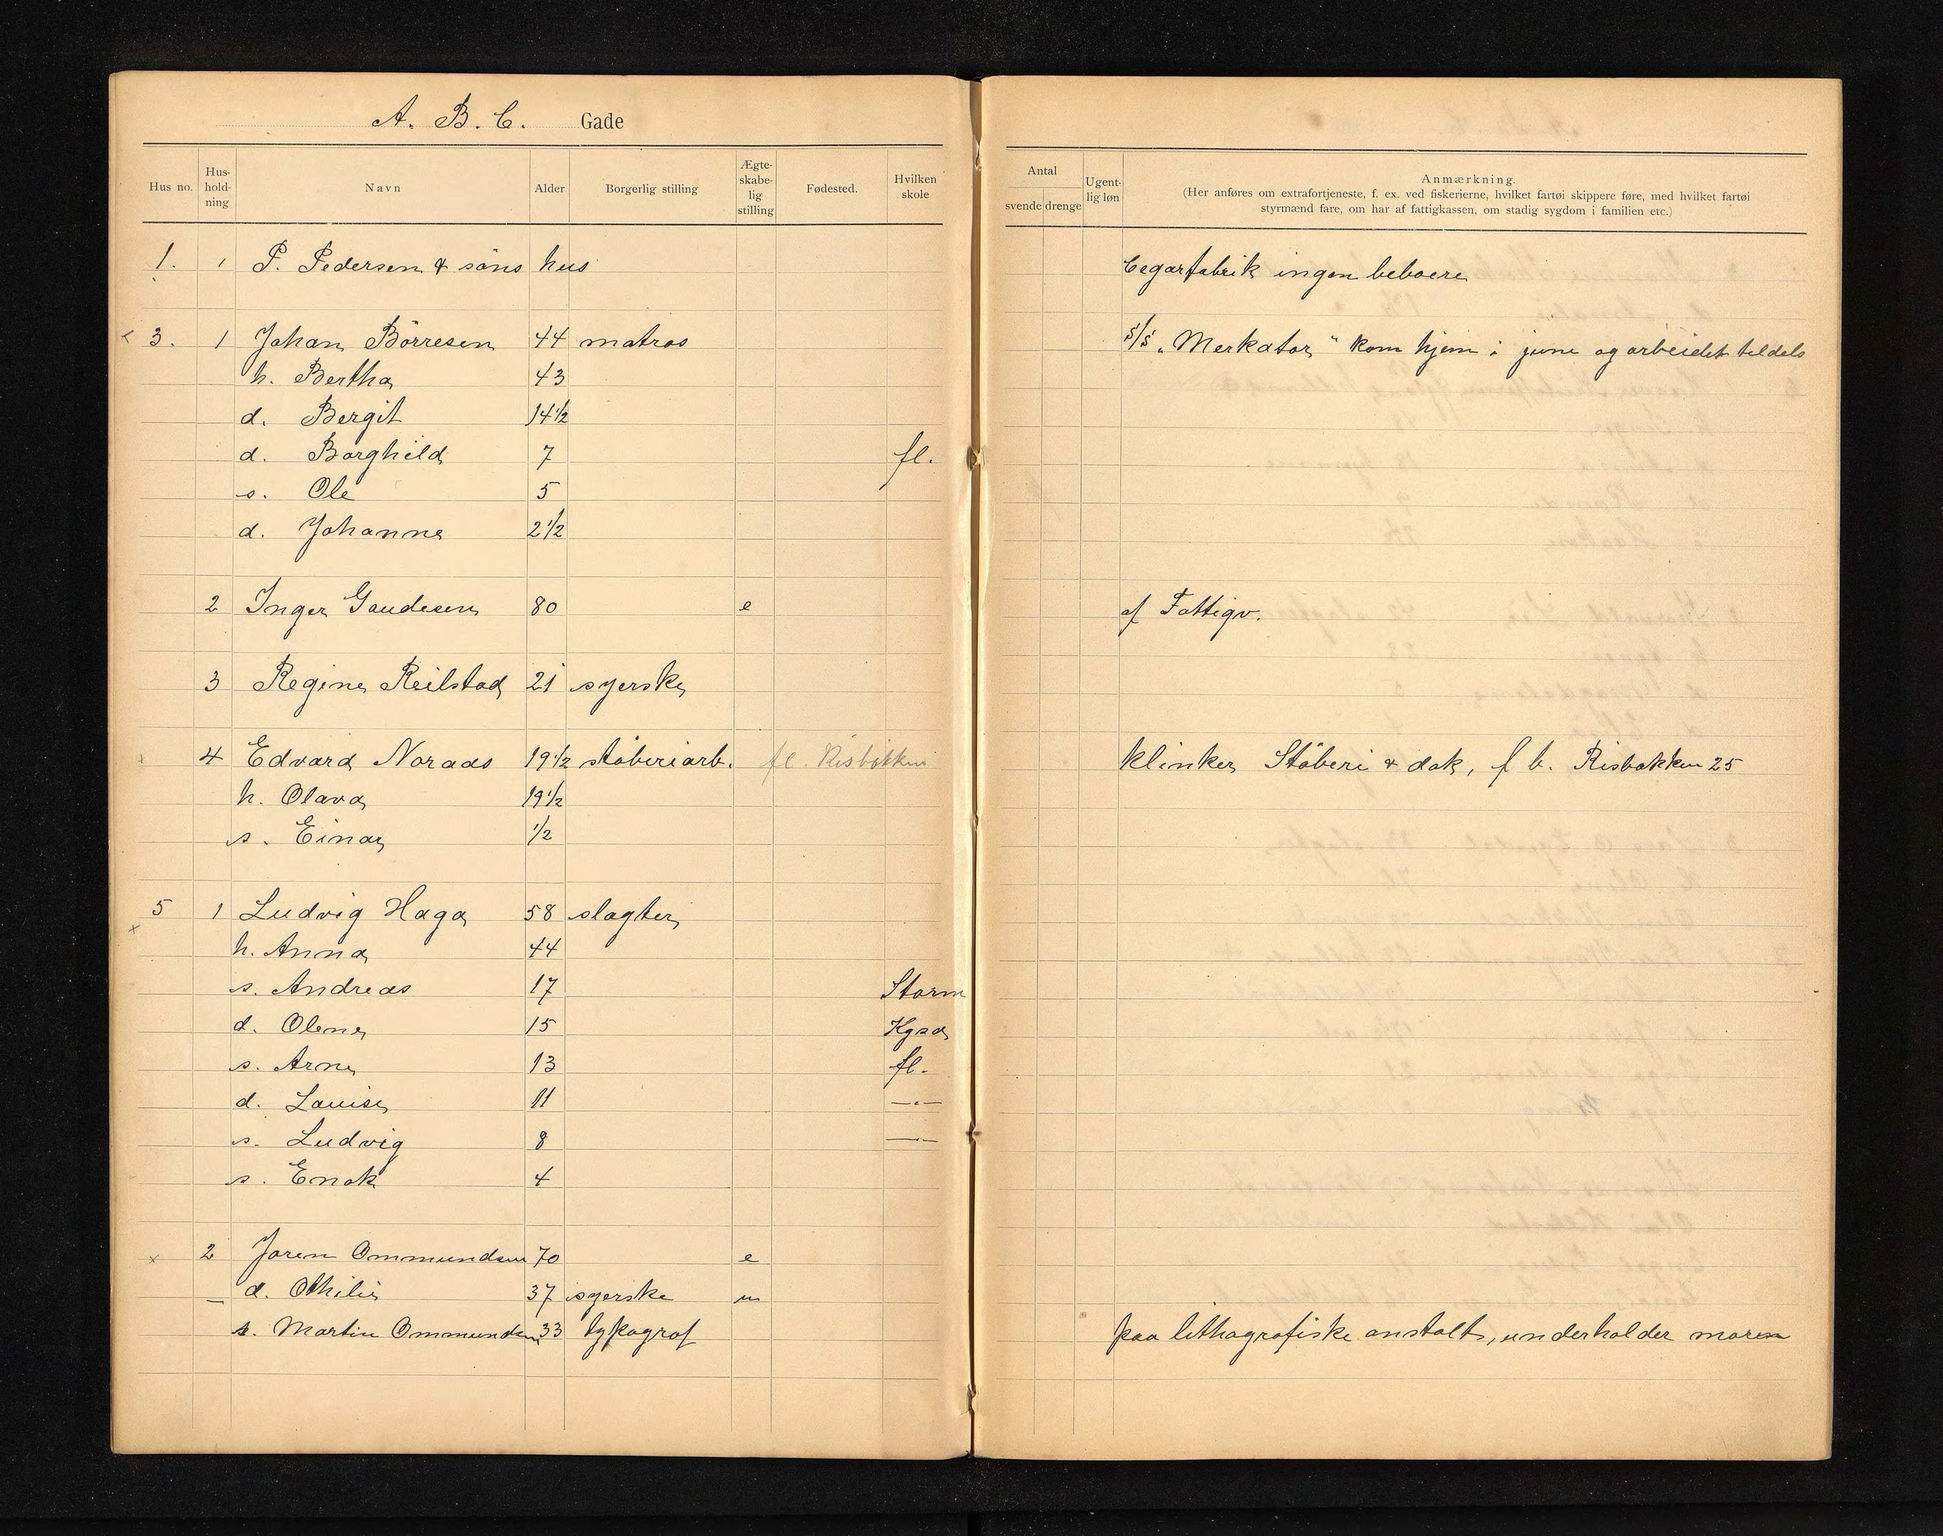 A. B. C. Gade
Hus no. Hus-hold-ning Navn Alder Borgerlig stilling Ægte-skabe-lig stilling Fødested. Hvilken skole
Antal svende drenge Ugent-lig løn Anmærkning.
(Her anføres om extrafortjeneste, f. ex. ved fiskerierne, hvilket fartøi skippere føre, med hvilket fartøi
styrmænd fare, om har af fattigkassen, om stadig sygdom i familien etc.)
1. 1 P. Pedersen & söns hus Cegarfabrik ingen beboere
3. 1 Johan Börresen 44 matros S/S „Merkator" kom hjem i june og arbeidet tildels
h. Bertha 43
d. Bergit 14 1/2
d. Borghild 7 fl.
s. Ole 5
d. Johanne 2 1/2
2 Inger Gaudesen 80 e af Fattigv.
3 Regine Reilstad 21 syerske
4 Edvard Noraas 19 1/2 stöberiarb. fl. Risbakken klinker Stöberi & dok, f b. Risbakken 25
h. Olava 19 1/2
s. Einar 1/2
5 1 Ludvig Haga 58 slagter
h. Anna 44
s. Andreas 17 Storm
d. Olene 15 Kgsd
s. Arne 13 fl.
d. Louise 11 —"—
s. Ludvig 8 —"—
s. Enok 4
2 Joren Ommundsen 70 e
— d. Othilie 37 syerske u
s. Martin Ommundsen 33 typograf paa lithografiske anstalt, underholder moren